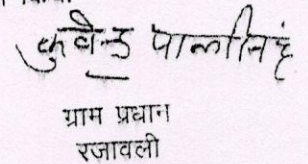 कुवेन्द्र पालसिंह
ग्राम प्रधान
रजावली